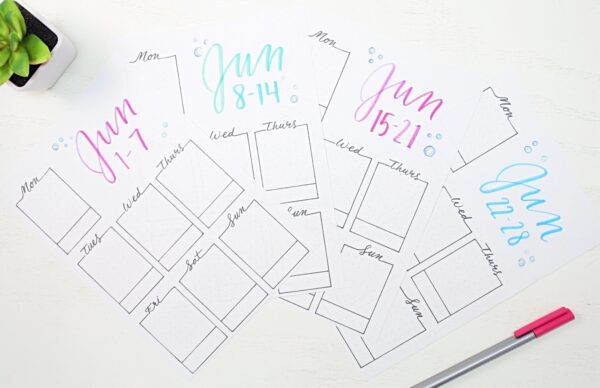 Jun
1-7
Mon
Tues
Wed
Thurs
Fri
Sat
Sun
Mon
Jun
8-14
Wed
Thurs
Sun
Mon
Jun
15-21
Wed
Thurs
Sun
Mon
Jun
22-28
Wed
Thurs
Sun